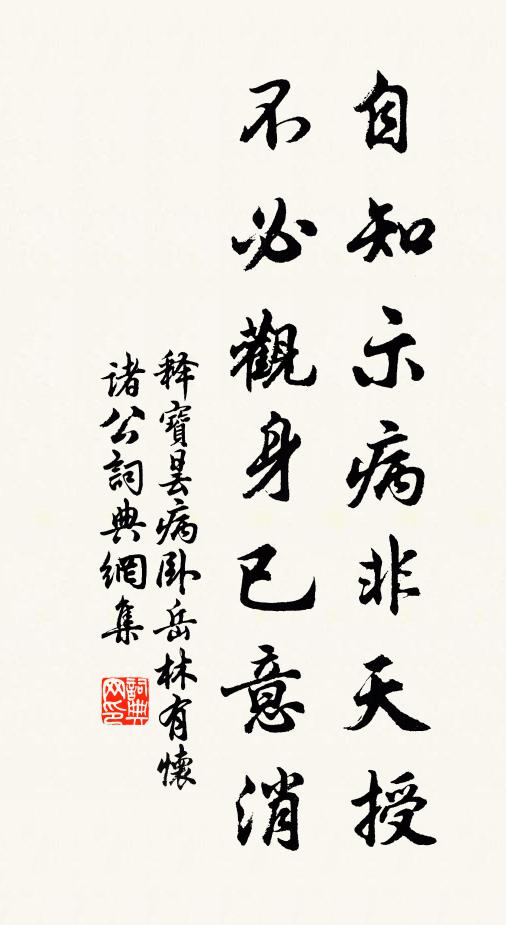 自知示病非天授
不必觀身已意消
释寶曇病卧岳林有懷
诸公詞典網集
詞典网印